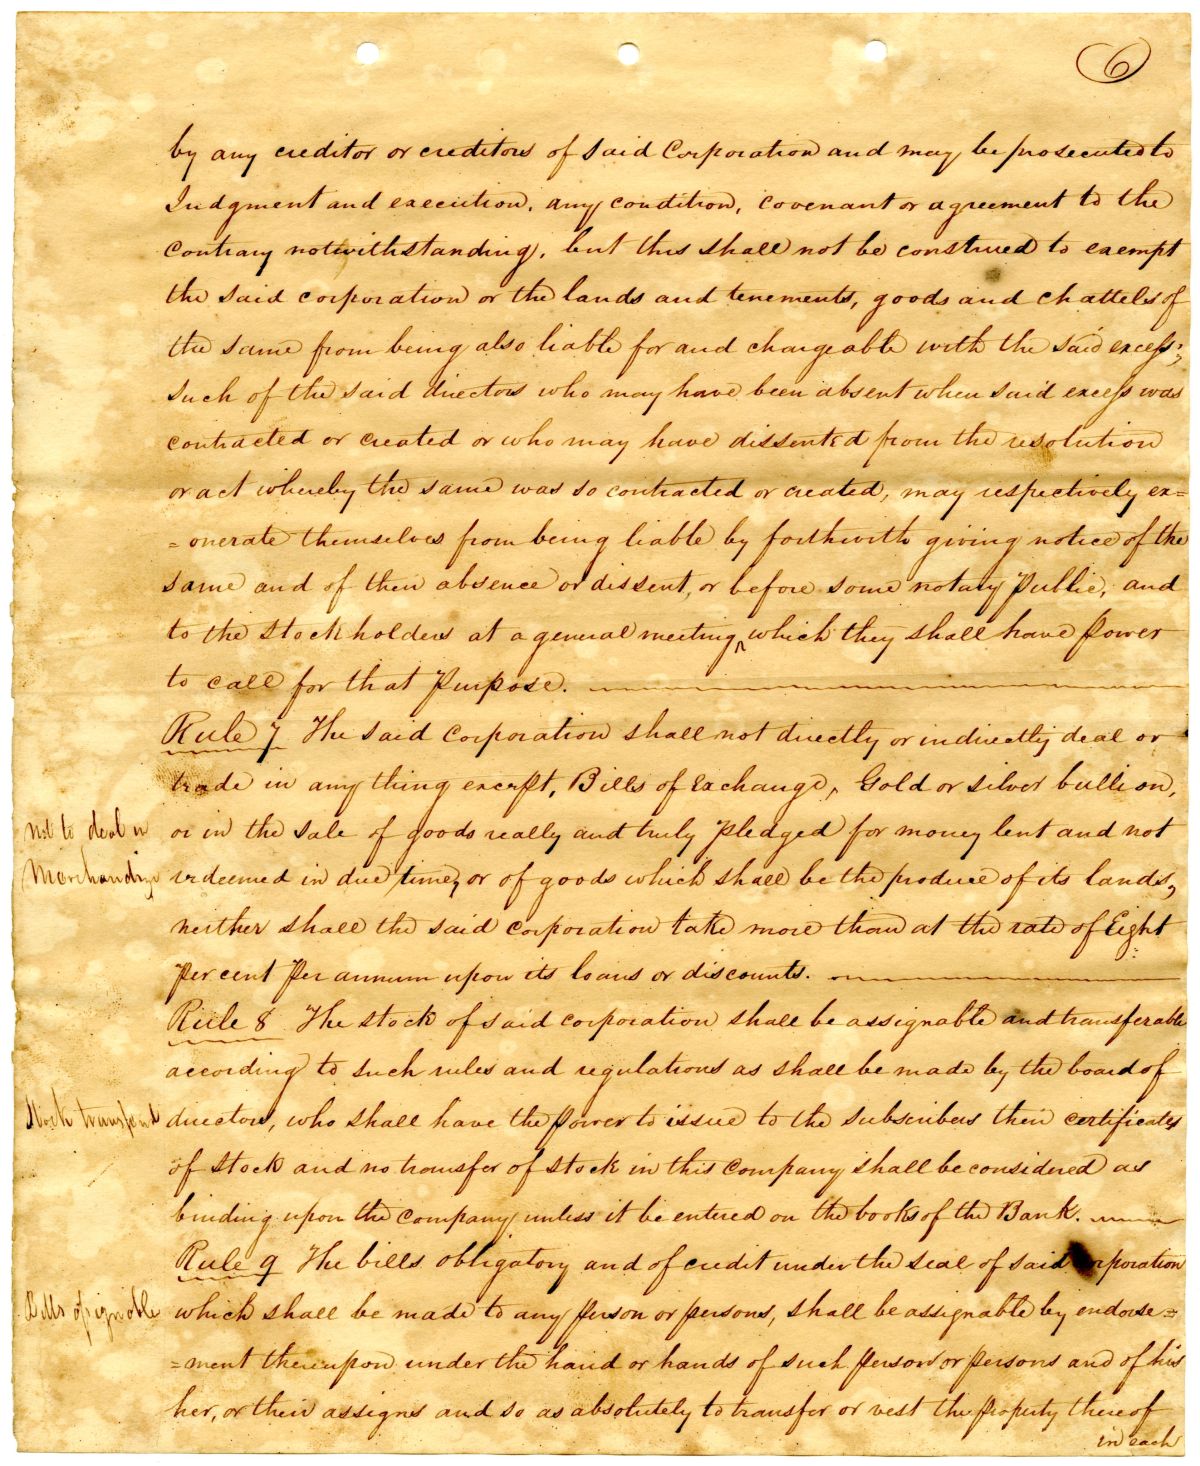 6
by any creditor or creditors of said Corporation and may be prosecuted to
Judgment and execution, any condition, covenant or agreement to the
contrary notwithstanding, but this shall not be construed to exempt
the said corporation or the lands and tenements, goods and chattels of
the same from being also liable for and chargeable with the said excess;
such of the said directors who may have been absent when said excess was
contracted or created or who may have dissented from the resolution
or act whereby the same was so contracted or created, may respectively ex=
=onerate themselves from being liable by forthwith giving notice of the
same and of their absence or dissent, or before some notary Public, and
to the Stockholders at a general meeting ^ which they shall have power
to call for that Purpose.
Rule 7 The said Corporation shall not directly or indirectly deal or
trade in any thing except, Bills of Exchange, Gold or silver bullion,
not to deal in
or in the sale of goods really and truly pledged for money lent and not
Merchandize
redeemed in due time, or of goods which shall be the produce of its lands,
neither shall the said corporation take more than at the rate of Eight
Per cent Per annum upon its loans or discounts.
Rule 8 The Stock of said corporation shall be assignable and transferable
according to such rules and regulations as shall be made by the board of
Stock transfered
directors, who shall have the power to issue to the subscribers their certificates
of stock and no transfer of stock in this Company shall be considered as
binding upon the company unless it be entered on the books of the Bank.
Rule 9 The bills obligatory and of credit under the seal of said corporation
Bills assignable
which shall be made to any person or persons, shall be assignable by endorse=
=ment thereupon under the hand or hands of such person or persons and of his
her, or their assigns and so as absolutely to transfer or vest the property thereof
in each